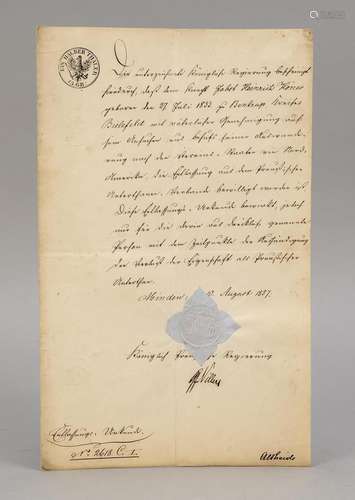 EIN HALBER THALER
15 GR.
Die unterzeichnete Königliche Regierung bescheinigt
hierdurch, daß dem Knecht Jobst Heinrich
geboren den 27 Juli 1832 zu Kreises
Bielefeldt mit väterlicher Genehmigung auf
sein Ansuchen und behufs seiner Auswande-
rung nach der Verein. Staaten von Nord-
Amerika die Entlassung aus dem Preußischen
Unterthanen-Verbande bewilligt worden ist.
Diese Entlassungs-Urkunde bewirkt, jedoch
nur für die darin ausdrücklich genannte
Person mit dem Zeitpunkte der Aushändigung
den Verlust der Eigenschaft als Preußischer
Unterthan.
Minden, August 1857.
Königlich Preußische Regierung
Entlassungs-Urkunde
No. 2618. C. 1.